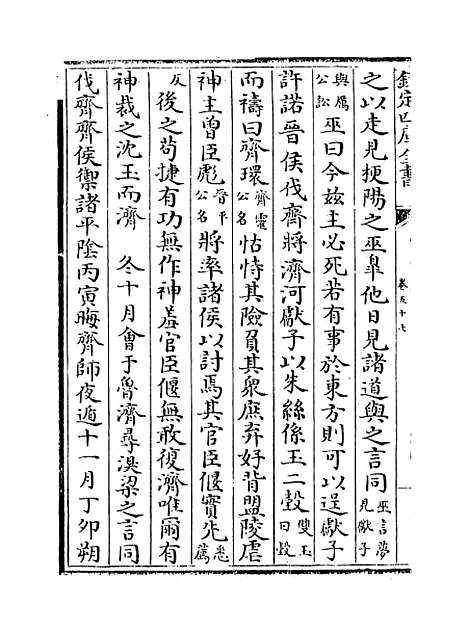 欽定四庫全書
卷五十七
之以走見梗陽之巫臯他日見諸道與之言同巫言夢見獻子
與厲公訟巫曰今茲主必死若有事於東方則可以逞獻子
許諾晉侯伐齊將濟河獻子以朱絲係玉二瑴雙玉曰瑴
而禱曰齊環齊靈公名怙恃其險負其衆庶弃好背盟陵虐
神主曾臣彪晉平公名將率諸侯以討焉其官臣偃實先悉薦
反後之苟捷有功無作神羞官臣偃無敢復濟唯爾有
神裁之沈玉而濟　冬十月會于魯濟尋湨梁之言同
伐齊齊侯禦諸平陰丙寅晦齊師夜遁十一月丁卯朔